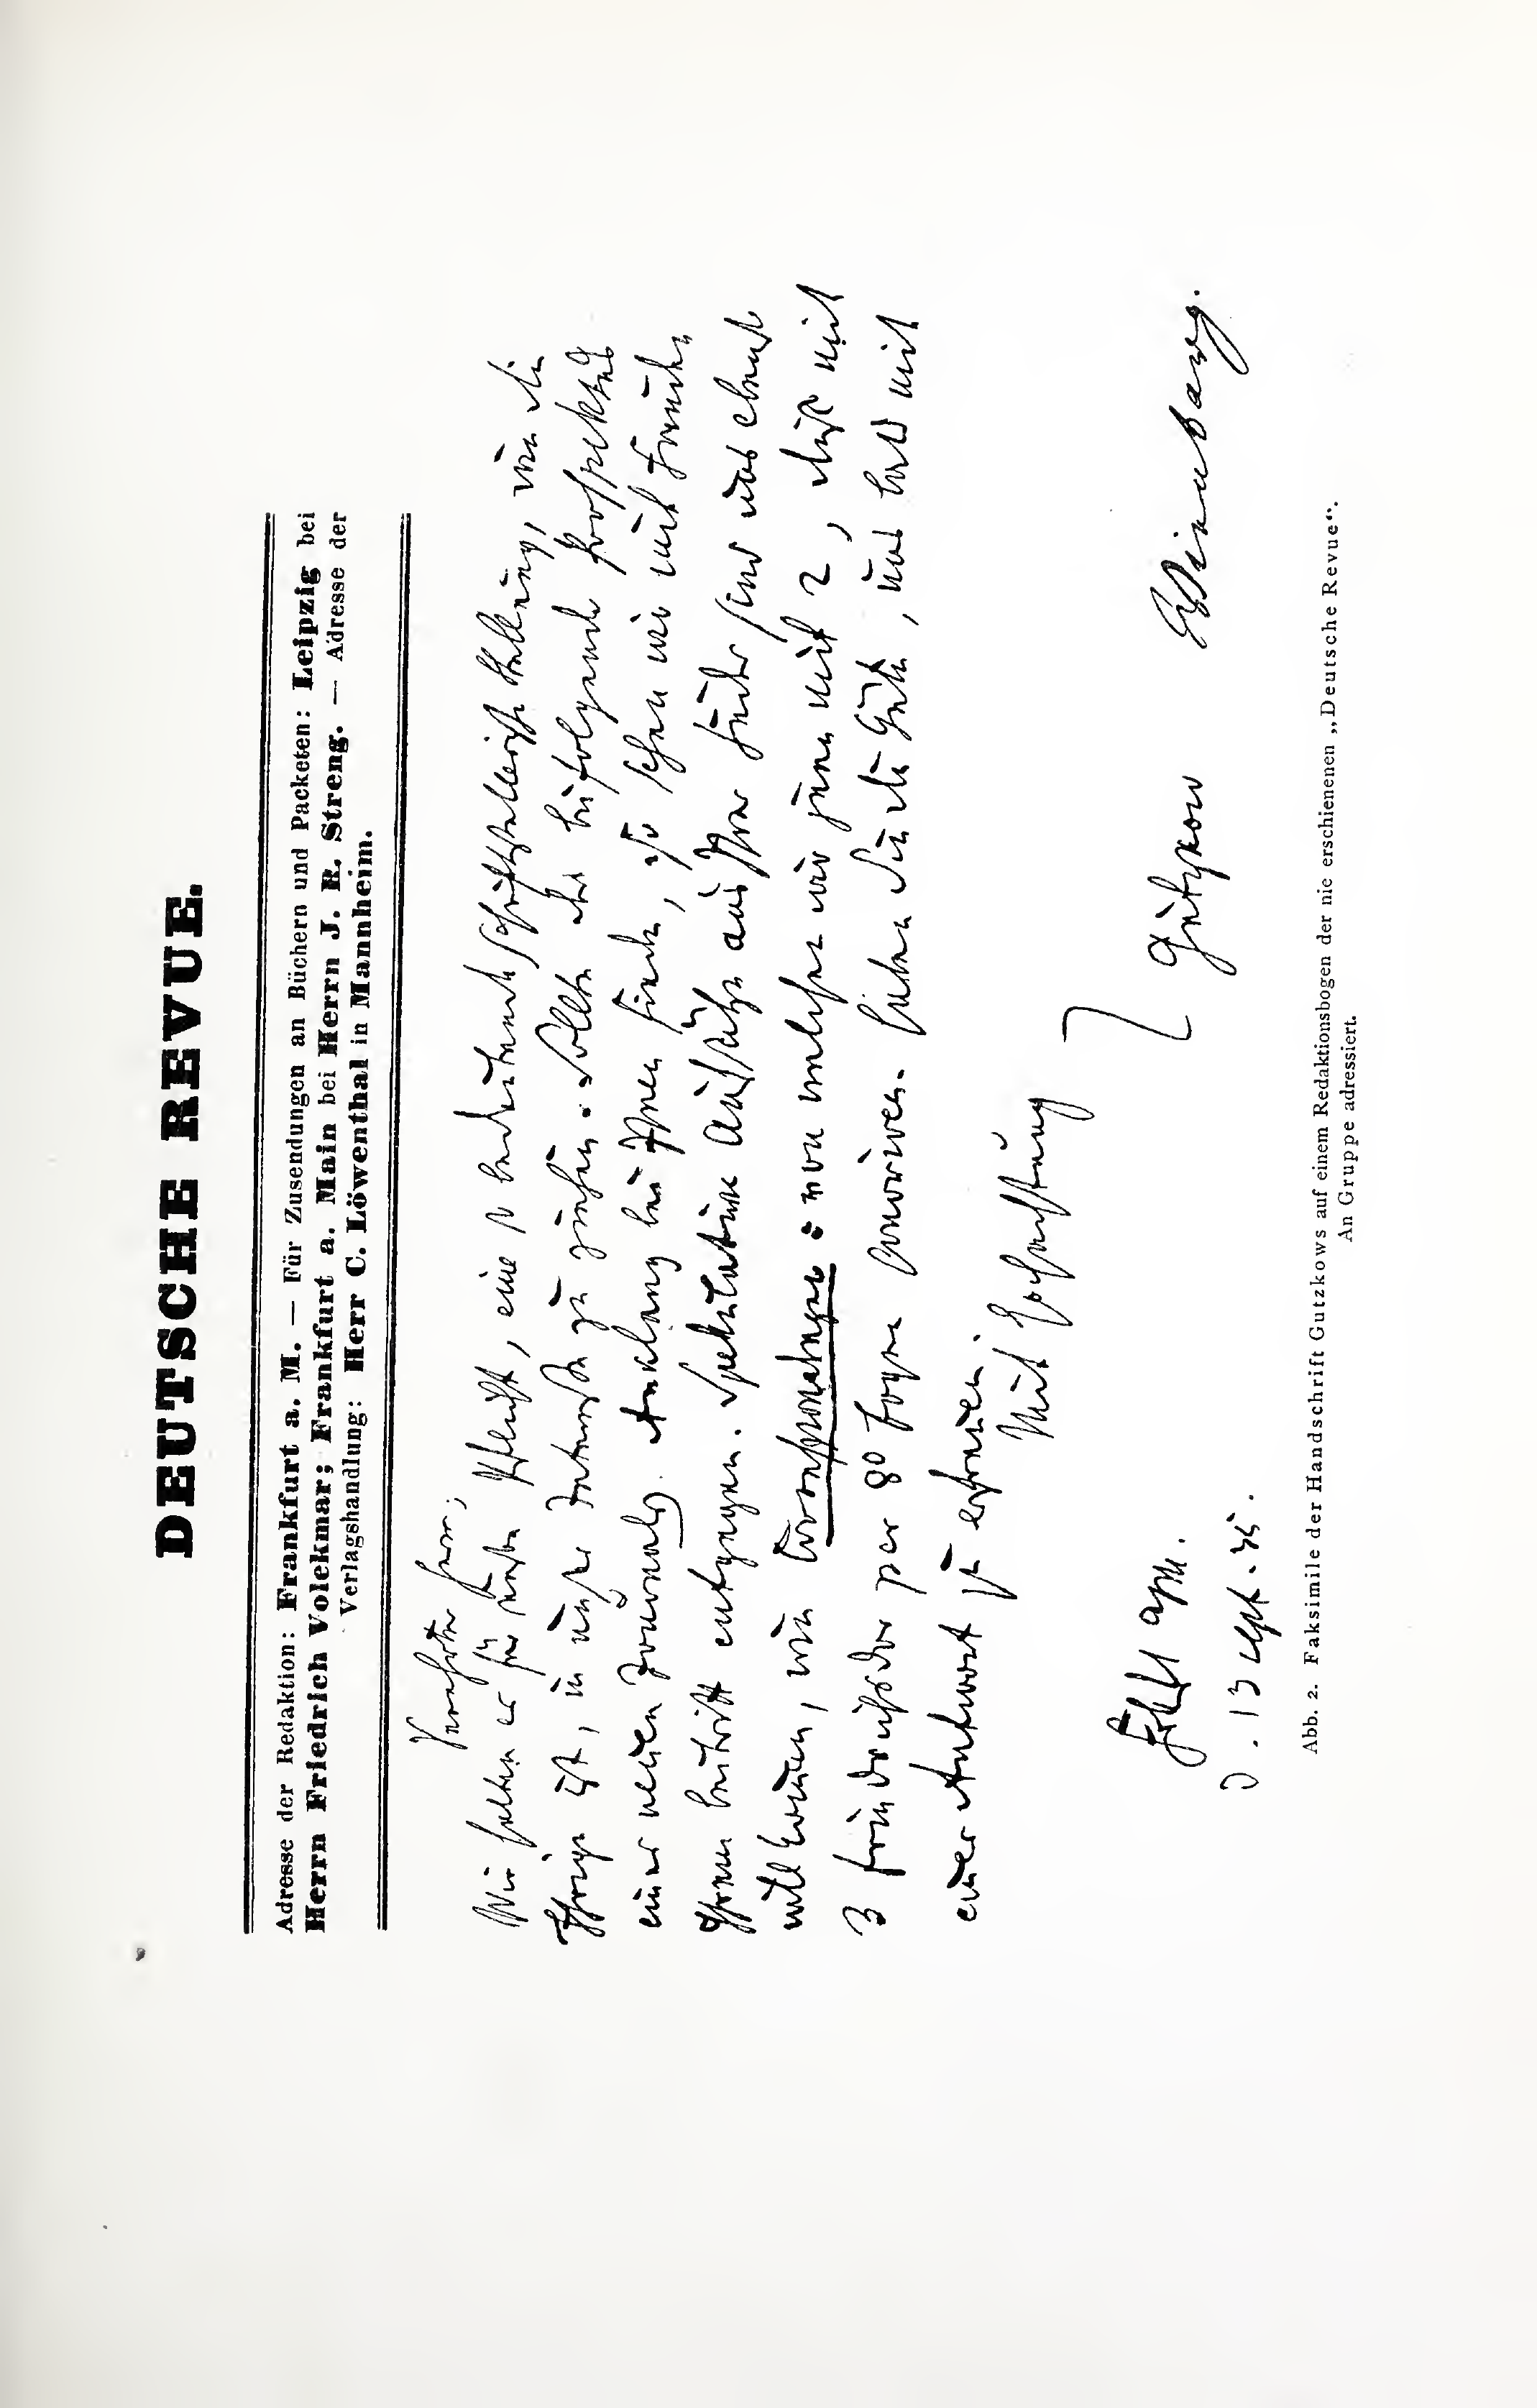 DEUTSCHE REVUE.
Adresse der Redaktion: Frankfurt a. M. — Für Zusendungen an Büchern und Packeten: Leipzig bei
Herrn Friedrich Volckmar; Frankfurt a. Main bei Herrn J. R. Streng. — Adresse der
Verlagshandlung: Herr C. Löwenthal in Mannheim.
Verehrter Herr,
Wir halten es für unsre Pflicht, eine so bedeutende schriftstellerische Stellung, wie die
Ihrige ist, in unser Interesse zu ziehen. Sollte der beifolgende Prospektus
eines neuen Journals Anklang bei Ihnen finden, so sehen wir mit Freuden
Ihrem Beitritt entgegen. Spekulative Aufsätze aus Ihrer Feder sind uns ebenso
willkommen, wie Correspondenzen: von welchen wir jene mit 2, diese mit
3 Friedrichsdor per 8° Bogen honoriren. Haben Sie die Güte, uns bald mit
einer Antwort zu erfreuen.
Mit Hochachtung
Gutzkow Wienbarg.
Frkft a/M.
d. 13 Sept. 35.
Abb. 2. Faksimile der Handschrift Gutzkows auf einem Redaktionsbogen der nie erschienenen „Deutsche Revue“.
An Gruppe adressiert.